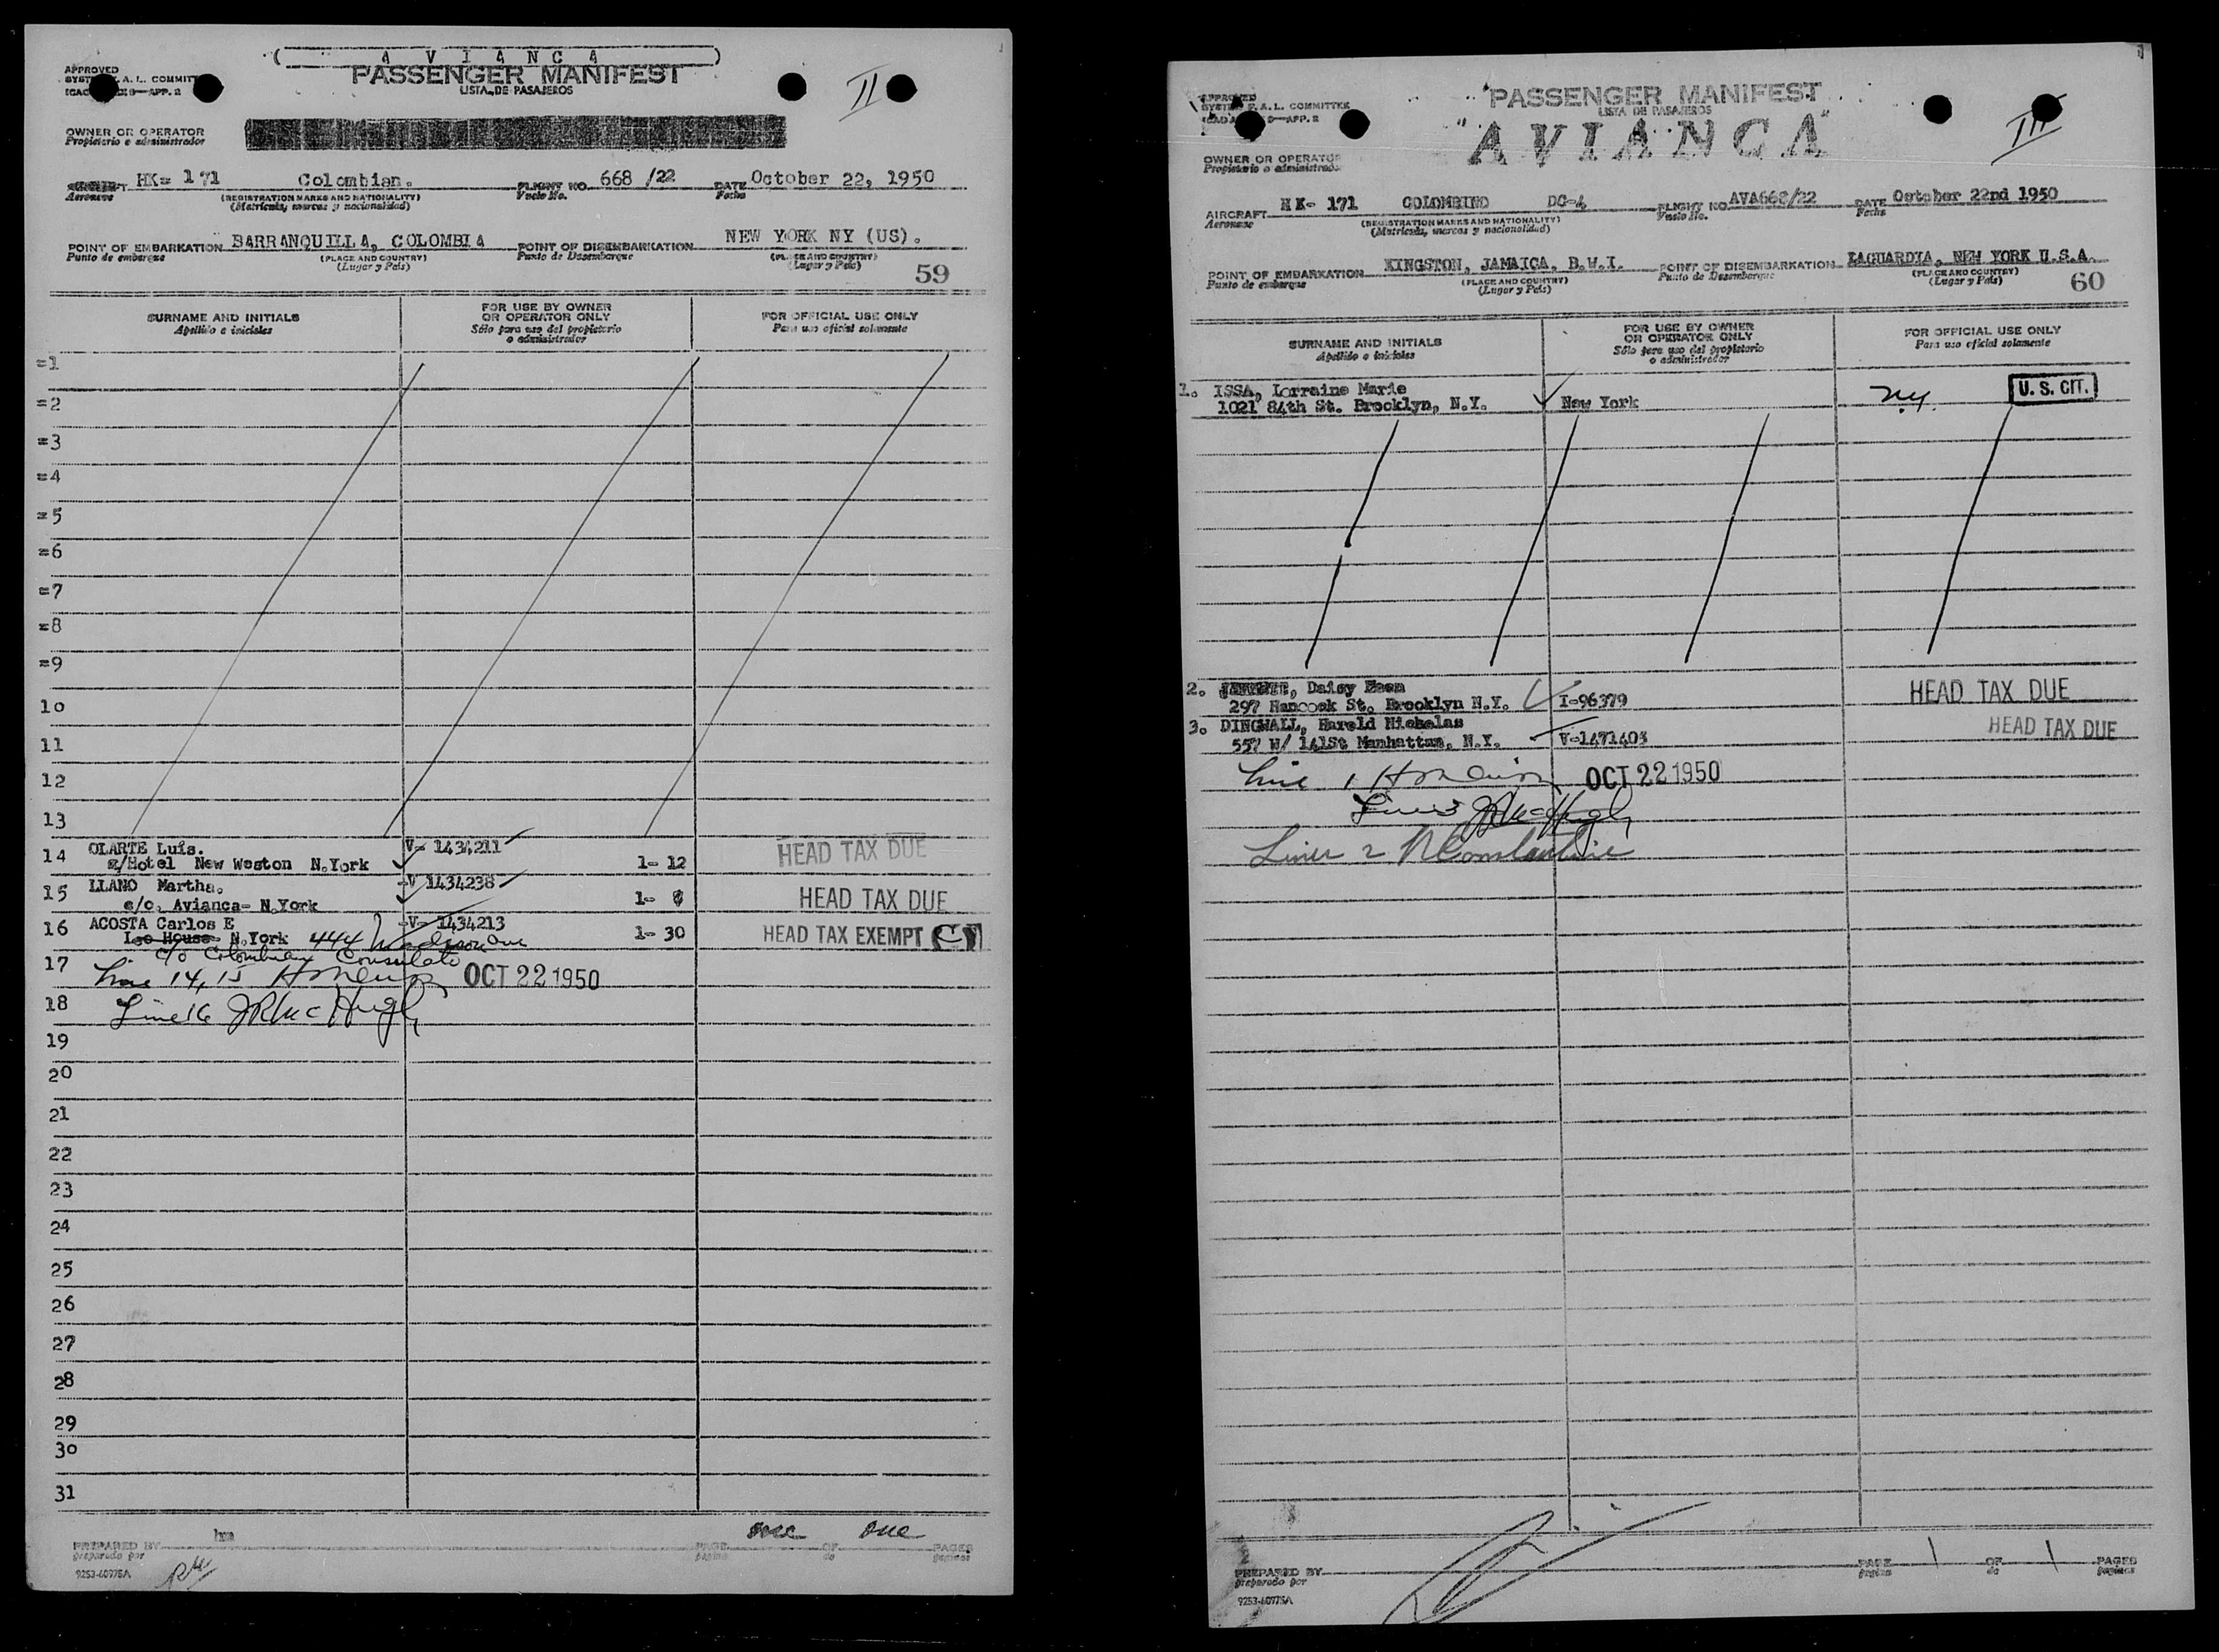 ( A V I A N C A )
PASSENGER MANIFEST
LISTA DE PASAJEROS
II
APPROVED
A. L. COMMIT
APP. 2
OWNER OR OPERATOR
Propietario o administrador
HK= 171 Colombian.
Aeronave
(REGISTRATION MARKS AND NATIONALITY)
(Matricula, marcas y nacionalidad)
FLIGHT NO. 668 /22
Vuelo No.
DATE October 22, 1950
Fecha
POINT OF EMBARKATION BARRANQUILLA, COLOMBIA
Punto de embarque
(PLACE AND COUNTRY)
(Lugar y País)
POINT OF DISEMBARKATION NEW YORK NY (US).
Punto de Desembarque
(PLACE AND COUNTRY)
(Lugar y País)
59
SURNAME AND INITIALS
Apellido e iniciales
FOR USE BY OWNER
OR OPERATOR ONLY
Sólo para uso del propietario
o administrador
FOR OFFICIAL USE ONLY
Para uso oficial solamente
=1
=2
=3
=4
=5
=6
=7
=8
=9
10
11
12
13
14 OLARTE Luis. V- 1434211
Hotel New Weston N.York 1- 12 HEAD TAX DUE
15 LLANO Martha. -V 1434238
c/o. Avianca- N.York 1- HEAD TAX DUE
16 ACOSTA Carlos E -V- 1434213
Leo House- N.York 444 Madison Ave 1- 30 HEAD TAX EXEMPT
c/o Colombian Consulate
17
Line 14, 15 OCT 22 1950
18 Line 16 JR McHugh
19
20
21
22
23
24
25
26
27
28
29
30
31
PREPARED BY
preparado por
PAGE one OF one PAGES
página de páginas
9253-60975A
PASSENGER MANIFEST
LISTA DE PASAJEROS
"AVIANCA"
III
APPROVED
F. A. L. COMMITTEE
9—APP. 2
OWNER OR OPERATOR
Propietario o administrador
AIRCRAFT HK- 171 COLOMBINO DC-4
Aeronave
(REGISTRATION MARKS AND NATIONALITY)
(Matricula, marcas y nacionalidad)
FLIGHT NO. AVA668/22
Vuelo No.
DATE October 22nd 1950
Fecha
POINT OF EMBARKATION KINGSTON, JAMAICA, B.W.I.
Punto de embarque
(PLACE AND COUNTRY)
(Lugar y País)
POINT OF DISEMBARKATION LAGUARDIA, NEW YORK U.S.A.
Punto de Desembarque
(PLACE AND COUNTRY)
(Lugar y País)
60
SURNAME AND INITIALS
Apellido e iniciales
FOR USE BY OWNER
OR OPERATOR ONLY
Sólo para uso del propietario
o administrador
FOR OFFICIAL USE ONLY
Para uso oficial solamente
1. ISSA, Lorraine Marie
1021 84th St. Brooklyn, N.Y. New York N.Y. U. S. CIT.
2. Daisy
297 Hancock St. Brooklyn N.Y. I-96379 HEAD TAX DUE
3. DINGWALL, Harold Nicholas
557 W/ 141St Manhattan, N.Y. V-1471403 HEAD TAX DUE
Line 1 OCT 22 1950
Line 3 JR McHugh
Line 2 N Constantine
PREPARED BY
preparado por
PAGE 1 OF 1 PAGES
página de páginas
9253-60975A